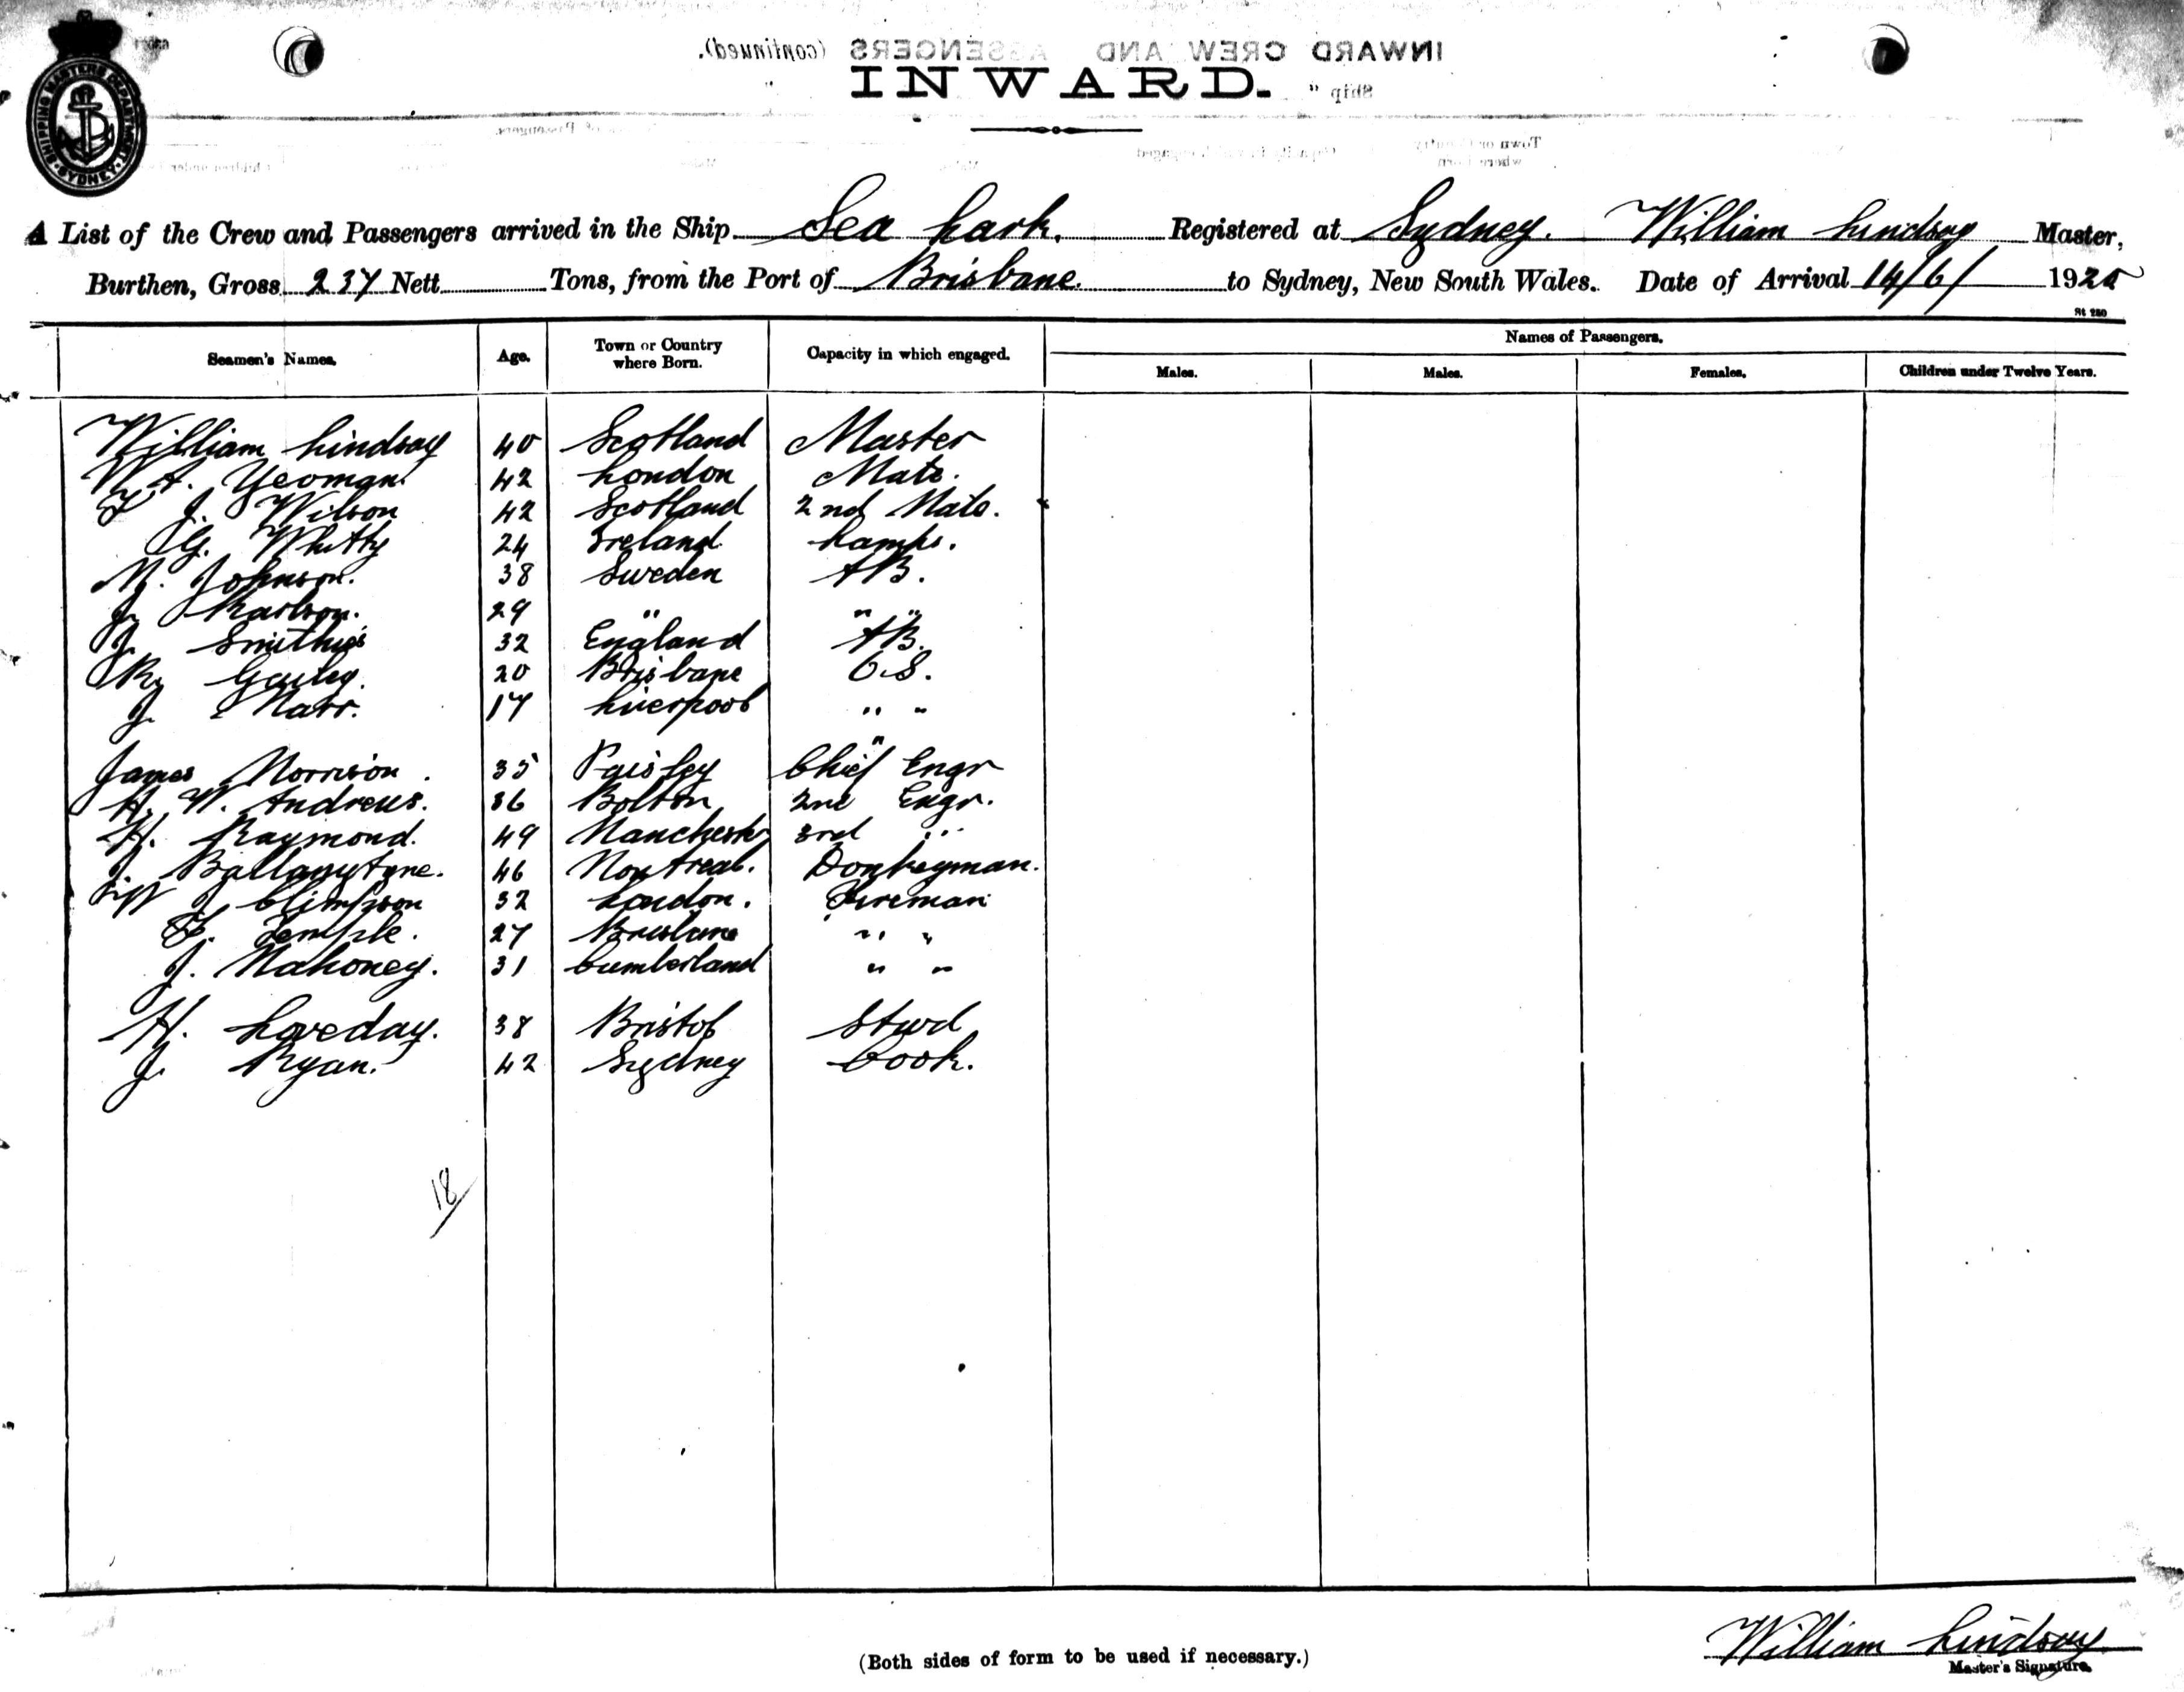 INWARD CREW AND PASSENGERS (continued).
INWARD.
Ship "
SHIPPING MASTERS DEPARTMENT SYDNEY
A List of the Crew and Passengers arrived in the Ship Sea Lark. Registered at Sydney. William Lindsay Master,
Burthen, Gross 237 Nett Tons, from the Port of Brisbane. to Sydney, New South Wales. Date of Arrival 14/6/ 1920
St 280
Seamen's Names. Age. Town or Country where Born. Capacity in which engaged. Names of Passengers.
Males. Males. Females. Children under Twelve Years.
William Lindsay 40 Scotland Master
W A. Yeoman 42 London Mate.
J. Wilson 42 Scotland 2nd Mate.
G. Whitty 24 Ireland Lamps.
M. Johnson. 38 Sweden AB.
J. Karlson. 29 " " "
J. Smithies 32 England AB.
R. 20 Brisbane O.S.
J. Marr. 17 Liverpool " "
James Morrison. 35 Paisley Chief Engr
H. W. Andrews. 36 Bolton 2nd Engr.
H. Raymond. 49 Manchester 3rd "
J. Ballantyne. 46 Montreal. Donkeyman.
J. Climpson 32 London. Fireman
F. Temple. 27 Brisbane " "
J. Mahoney. 31 Cumberland " "
H. Loveday. 38 Bristol Stwd
J. Ryan. 42 Sydney Cook.
18/
William Lindsay
Master's Signature.
(Both sides of form to be used if necessary.)